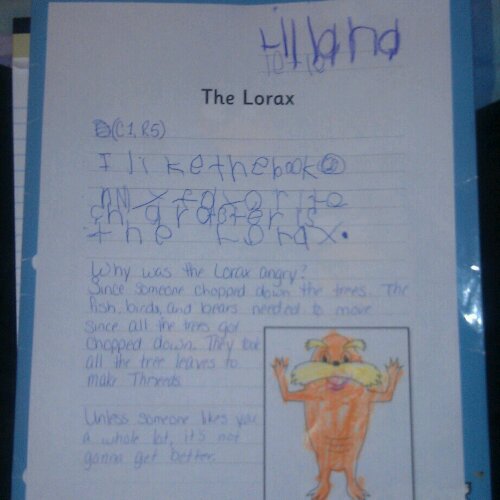 The Lorax
(C1, R5)
I like the book
My favorite
character is
the Lorax.
Why was the Lorax angry?
Since someone chopped down the trees. The
fish, birds, and bears needed to move
since all the trees got
chopped down. They took
all the tree leaves to
make Thneeds.
Unless someone likes you
a whole lot, it's not
gonna get better.